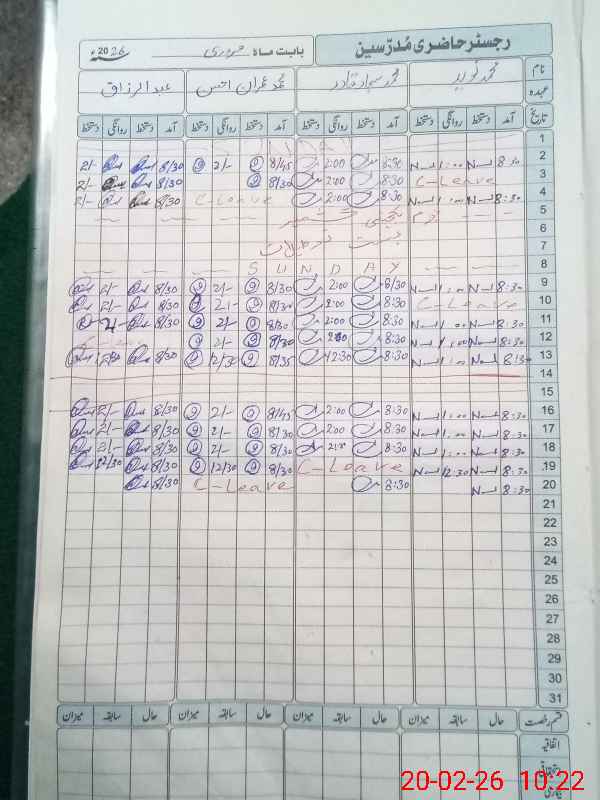 رجسٹر حاضری مُدرّسین
بابت ماہ فروری
2026ء
نام محمد نوید عبدالرزاق
عہدہ
تاریخ آمد دستخط روانگی دستخط آمد دستخط روانگی دستخط آمد دستخط روانگی دستخط آمد دستخط روانگی دستخط
1
2 8:30 1:00 8:30 2:00 8/45 2/- 8/30 2/-
3 C-Leave 8:30 2:00 8/30 8/30 2/-
4 8:30 1:00 8:30 2:00 C-Leave 8/30 2/-
5 یوم یکجہتی کشمیر
6
7
8 SUNDAY
9 8:30 1:00 8/30 2:00 8/30 2/- 8/30 2/-
10 C-Leave 8:30 2:00 8/30 2/- 8/30 2/-
11 8:30 1:00 8:30 2:00 8/30 2/- 8/30
12 8:30 1:00 8:30 2:00 8/30 2/-
13 8:30 1:00 8:30 12:30 8/35 12/30 8/30
14
15
16 8:30 1:00 8:30 2:00 8/45 2/- 8/30 2/-
17 8:30 1:00 8:30 2:00 8/30 2/- 8/30 2/-
18 8:30 1:00 8:30 8/30 2/- 8/30 2/-
19 8:30 12:30 C-Leave 8/30 12/30 8/30 12/30
20 8:30 8:30 C-Leave 8/30
21
22
23
24
25
26
27
28
29
30
31
قسم رخصت حال سابقہ میزان حال سابقہ میزان حال سابقہ میزان حال سابقہ میزان
اتفاقیہ
بیماری
20-02-26 10:22